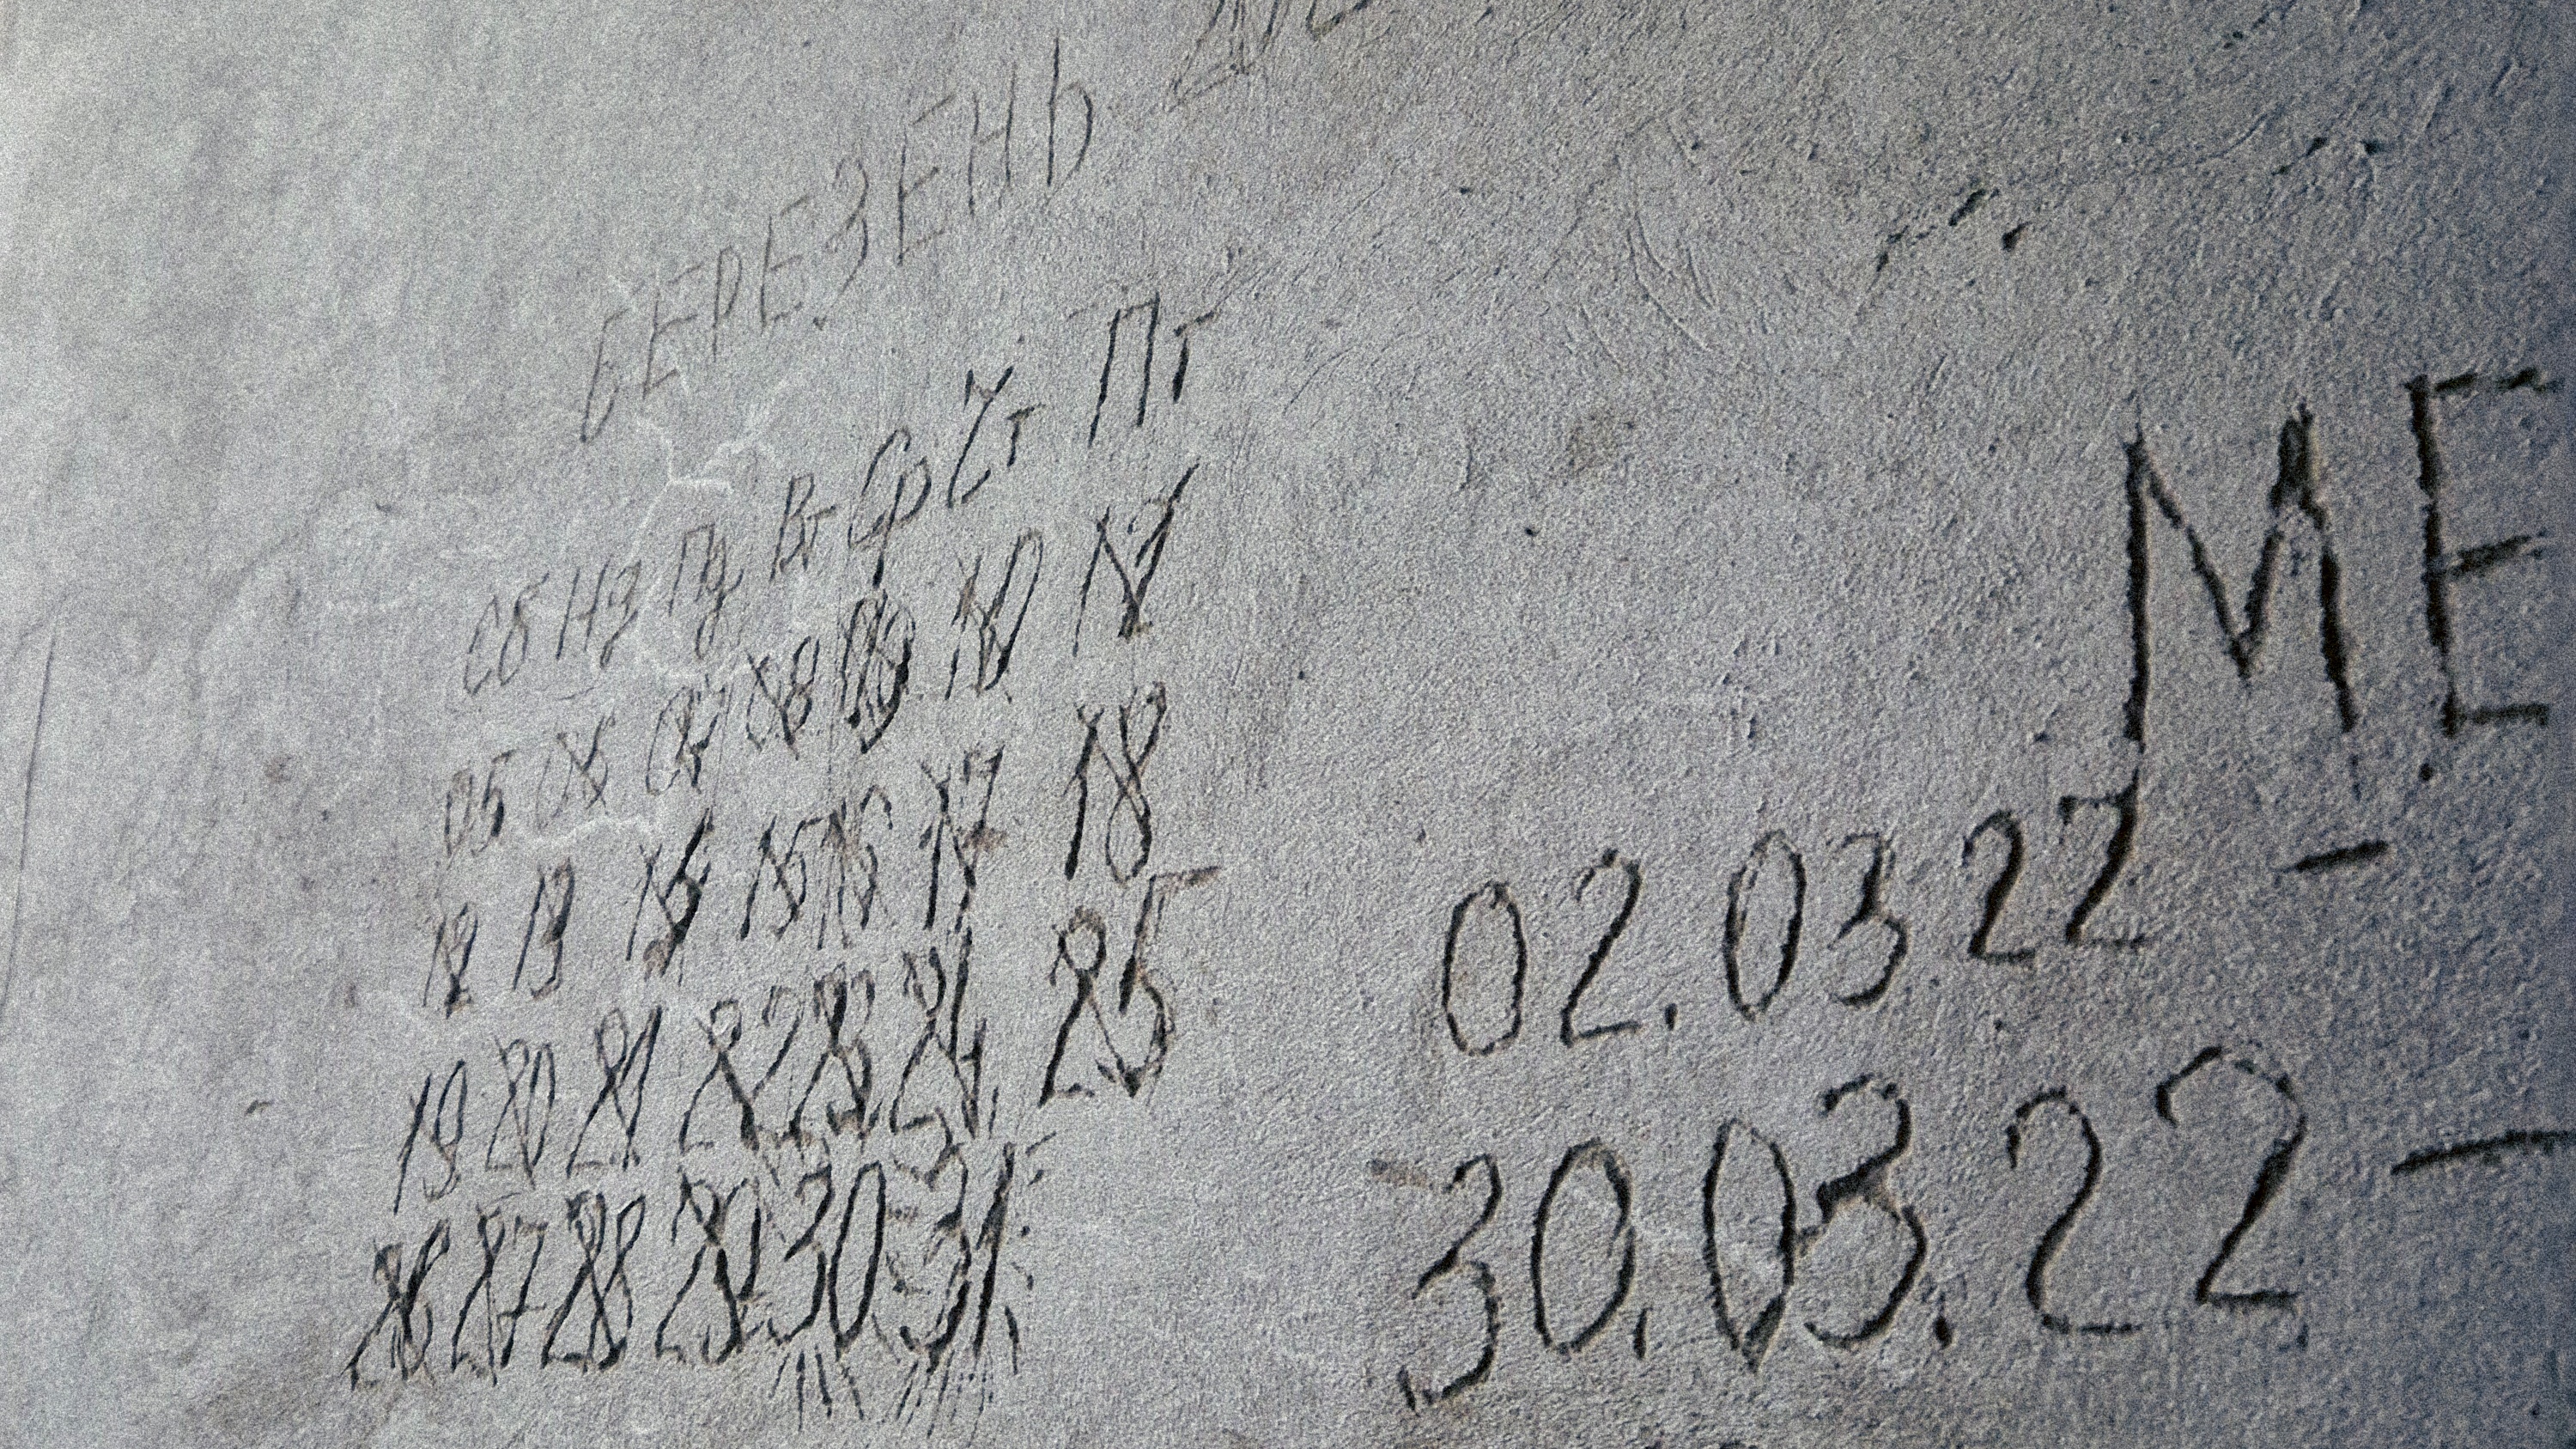 БЕРЕЗЕНЬ
Сб Нд Пд Вт Ср Чт Пт
05 06 07 08 09 10 11
12 13 14 15 16 17 18
19 20 21 22 23 24 25
26 27 28 29 30 31
МЕ
02.03.22 –
30.03.22 –